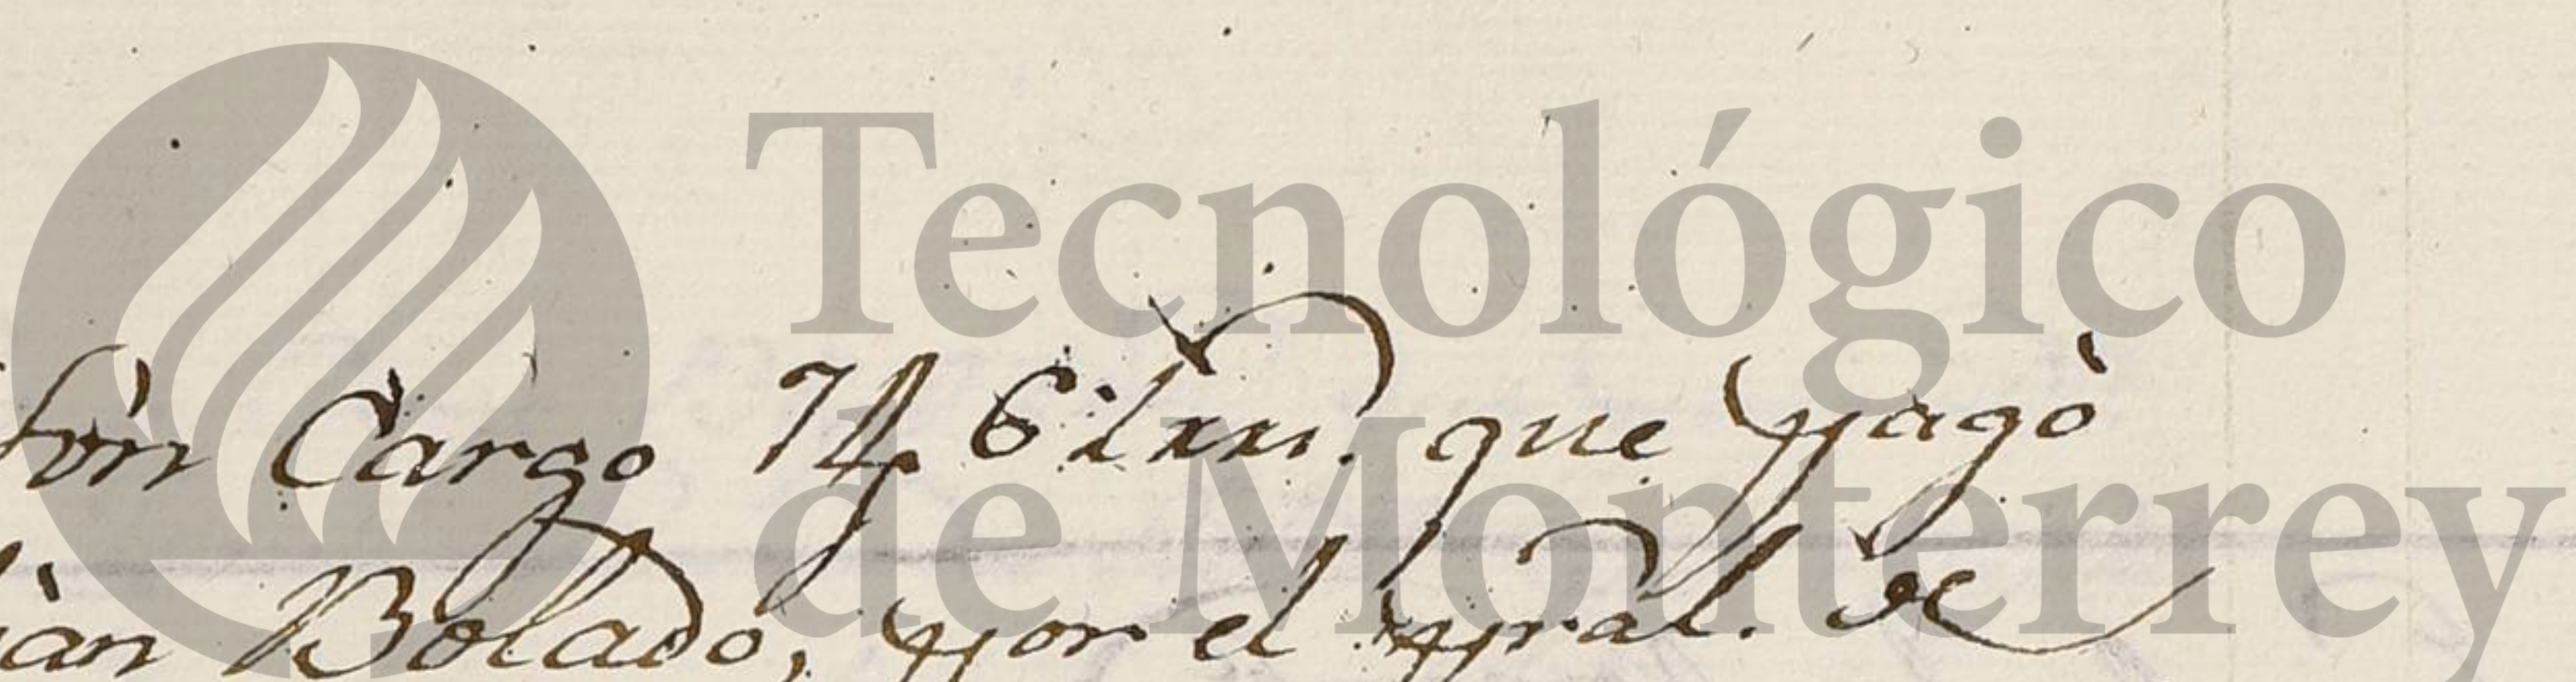 Tecnológico
de Monterrey
Son Cargo 74 6 que pagò
àn Bolado, por el pral. de